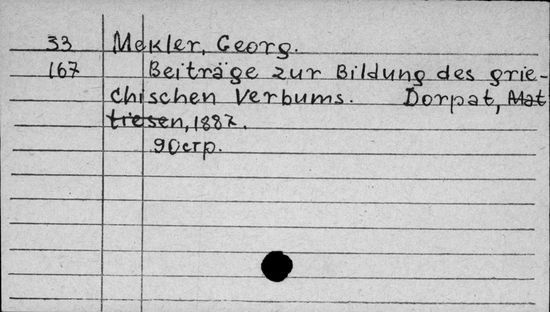 33 Mekler, Georg.
167 Beiträge zur Bildung des grie-
chischen Verbums. Dorpat, Mat
triesen, 1887.
90 стр.